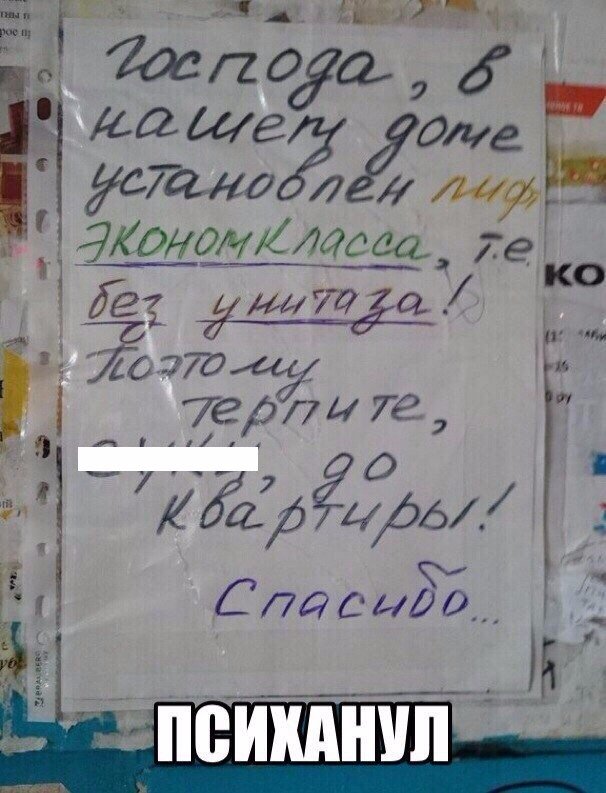 Господа, в
нашем доме
установлен лифт
экономкласса, т.е.
без унитаза!
Поэтому
терпите,
до
квартиры!
Спасибо...
КО
ПСИХАНУЛ